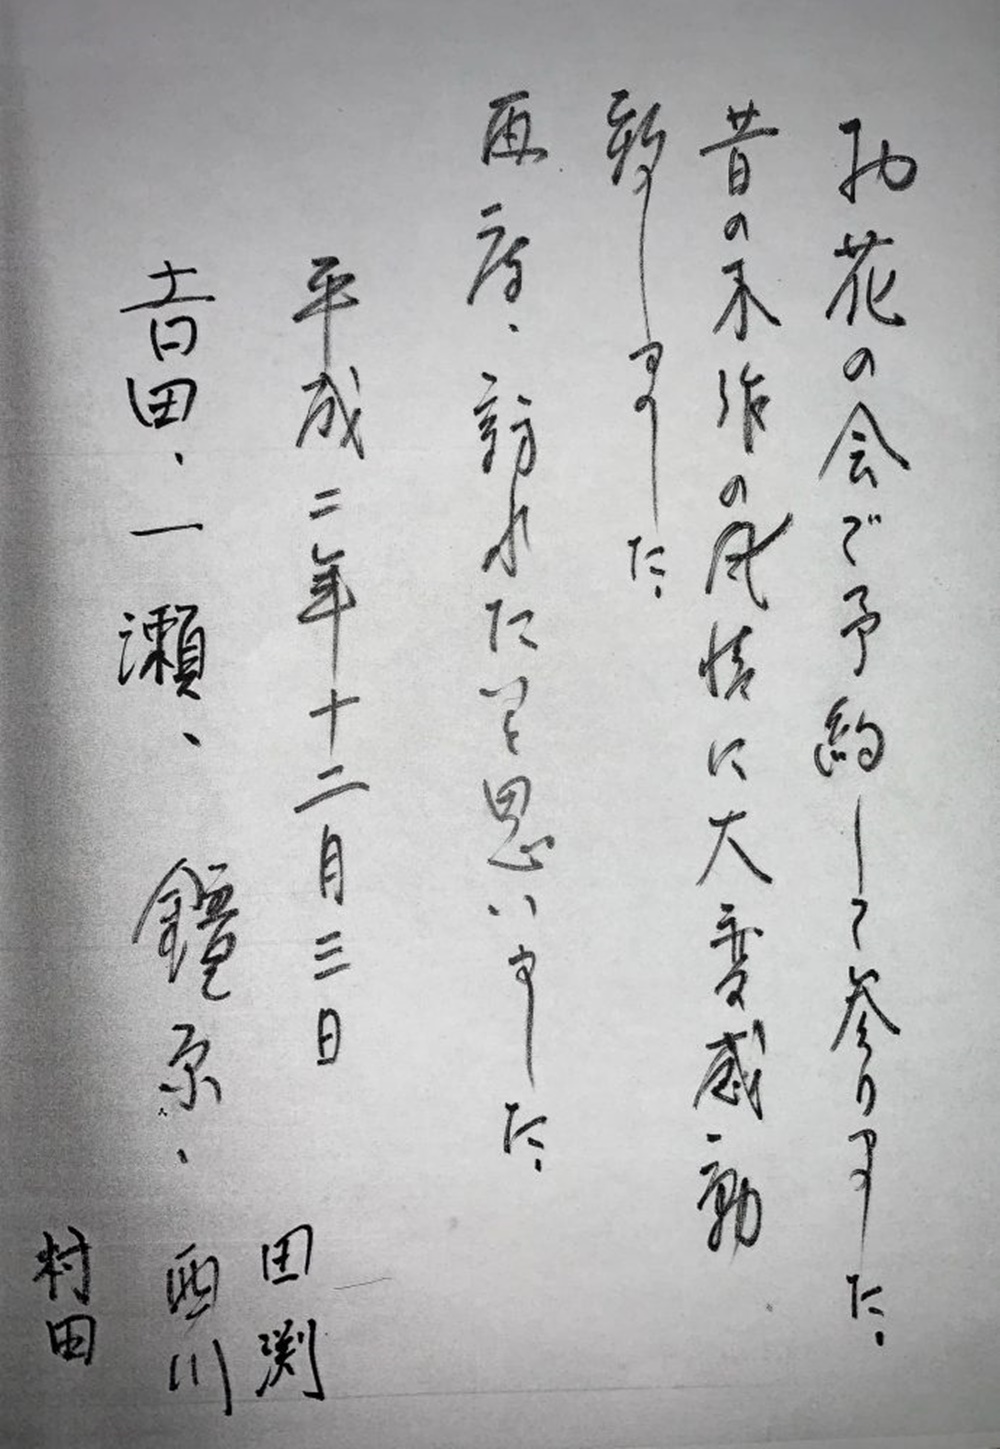 お花の会で予約して参りました.
昔の木作の風情に大変感動
致しました.
再度、訪れたいと思いました.
平成二年十二月三日
吉田、一瀬、鐘原、
田渕
西川
村田